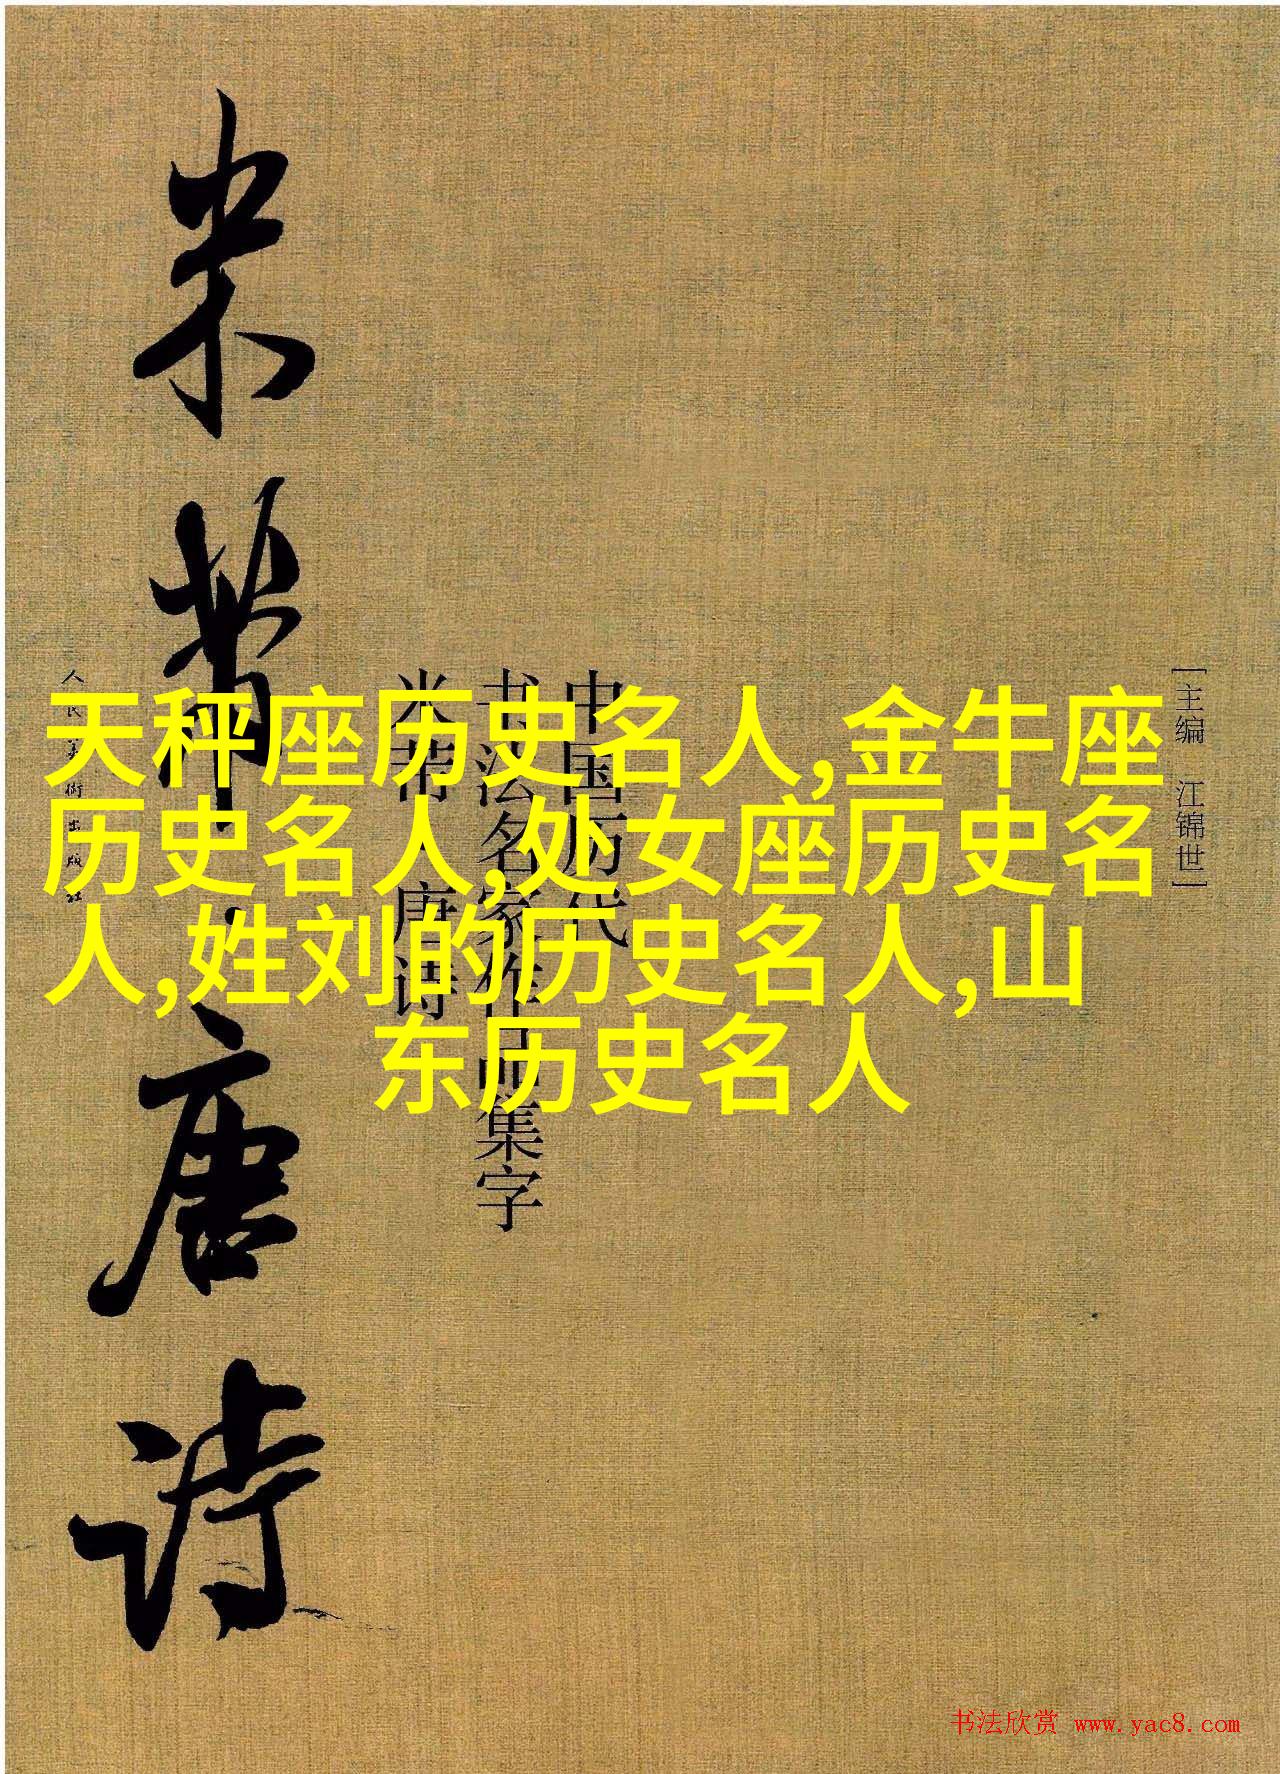 天秤座历史名人,金牛座
历史名人,处女座历史名
人,姓刘的历史名人,山
东历史名人
[主编 江锦世]
中国历代
书法名家作品集字
米芾 唐诗
米芾·唐诗
人民美術出版社
书法欣赏 www.yac8.com